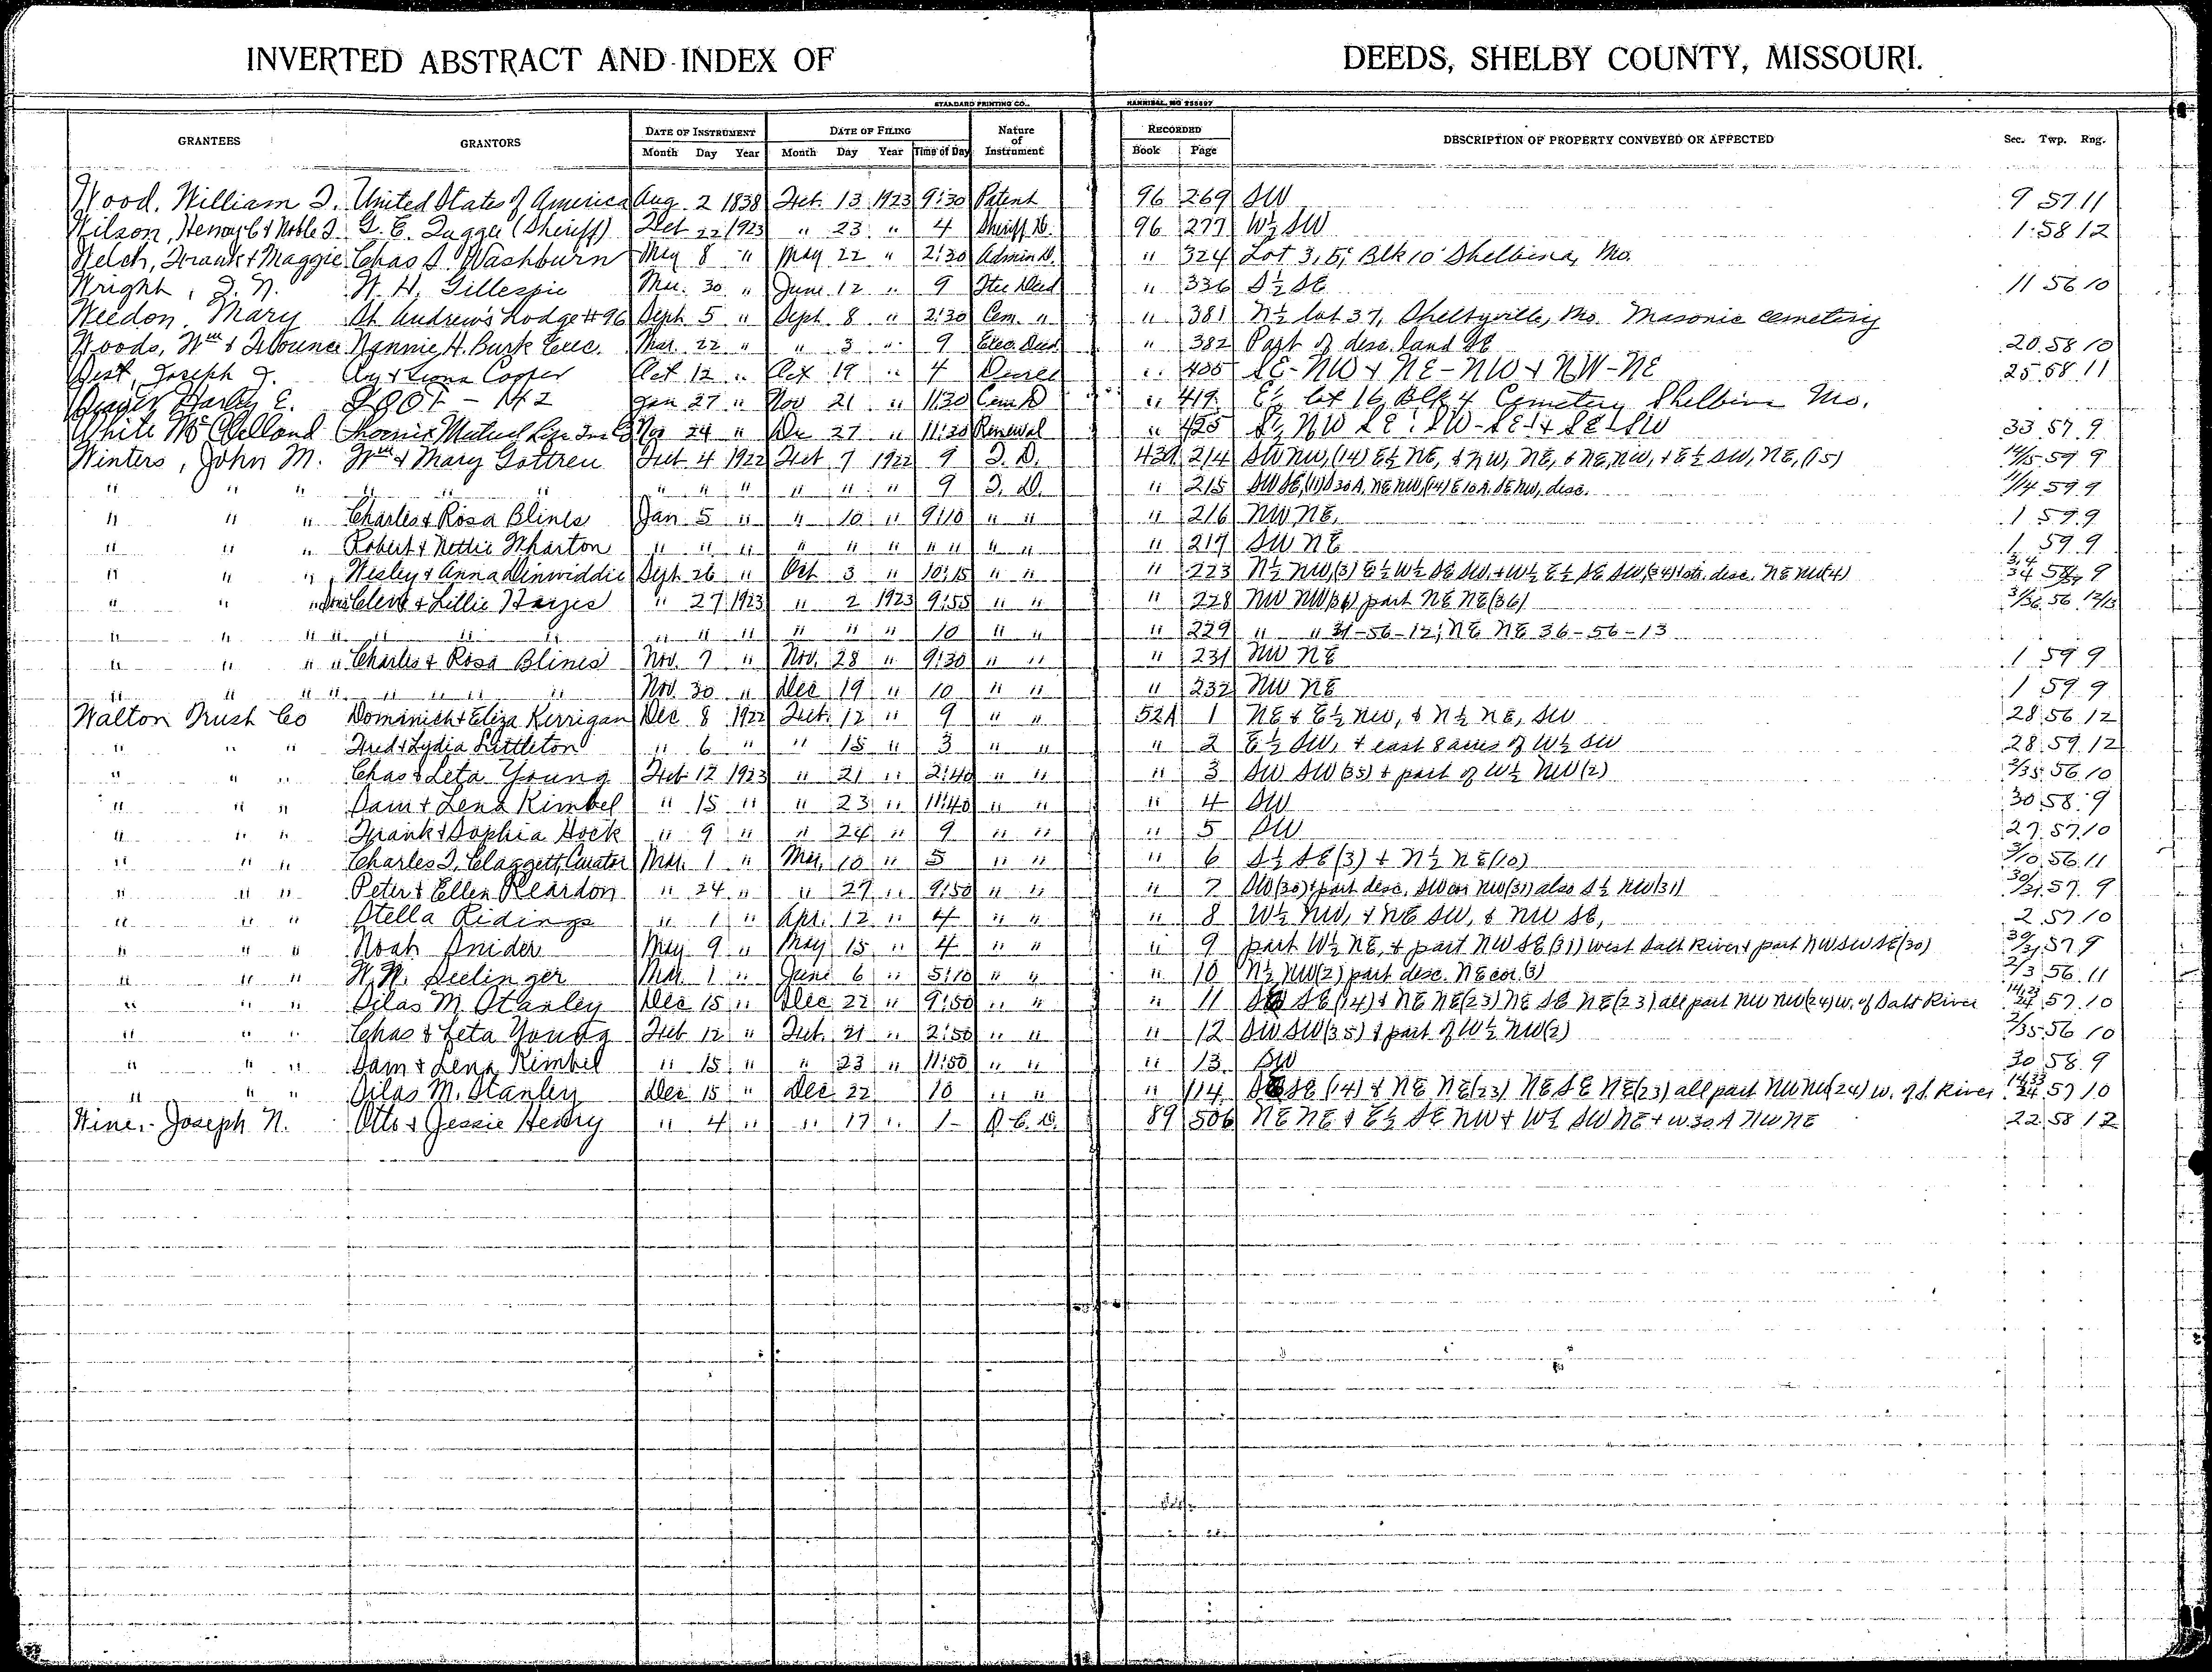 INVERTED ABSTRACT AND INDEX OF DEEDS, SHELBY COUNTY, MISSOURI.
STANDARD PRINTING CO., HANNIBAL, MO
GRANTEES GRANTORS DATE OF INSTRUMENT DATE OF FILING Nature of Instrument RECORDED DESCRIPTION OF PROPERTY CONVEYED OR AFFECTED Sec. Twp. Rng.
Month Day Year Month Day Year Time of Day Book Page
Wood, William T. United States of America Aug 2 1838 Feb. 13 1923 9:30 Patent 96 269 SW 9 57 11
Wilson, Henry C & Noble (Sheriff) Feb 22 1923 " 23 " 4 Sheriff D. 96 277 W½ SW 1 58 12
Welch, Frank & Maggie Chas S. Washburn May 8 " May 22 " 2:30 Admin D. " 324 Lot 3, 5, Blk 10 Shelbina, Mo.
Wright, W. H. Gillespie Mar. 30 " June 12 " 9 Deed " 336 S½ SE 11 56 10
Weedon, Mary St Andrew's Lodge #96 Sept 5 " Sept. 8 " 2:30 Cem. " " 381 N½ lot 37, Shelbyville, Mo. Masonic cemetery
Woods, Wm & Nannie H. Burk Exec. Mar. 22 " " 3 " 9 Exec. Deed " 382 Part of desc. land SE 20 58 10
West, Joseph Cooper Oct 12 " Oct 19 " 4 " 405 SE-NW & NE-NW & NW-NE 25 58 11
Harley E. I.O.O.F - 142 Jan 27 " Nov 21 " 11:30 Cem D " 419 E½ lot 16, Blk 4 Cemetery Shelbina Mo.
White McClelland Phoenix Mutual Life Ins Co Nov 24 " De 27 " 11:30 Renewal " 425 33 57 9
Winters, John M. Wm & Mary Gottren Feb 4 1922 Feb 7 1922 9 T. D. 43A 214 SW NW, (14) E½ NE, & NW, NE, & NE, NW, & E½ SW, NE, (15) 14/15 59 9
" " " " " " " " " " " 9 T. D. " 215 SW SE, (11) S 30 A, NE NW, (14) E 10 A. SE NW, desc. 11/14 59 9
" " " Charles & Rosa Blines Jan 5 " " 10 " 9:10 " " " 216 NW NE, 1 59 9
" " " Robert & Nettie Wharton " " " " " " " " " " " 217 SW NE 1 59 9
" " " Wesley & Anna Dinwiddie Sept. 26 " Oct 3 " 10:15 " " " 223 N½ NW, (3) E½ W½ SE SW, & W½ E½ SE SW, (34) desc. NE NW(4)
" " " Cleve & Lillie Hayes " 27 1923 " 2 1923 9:55 " " " 228 NW NW(36) part NE NE(36) 31/36 56 12/13
" " " " " " " " " " " " 10 " " " 229 " " 31-56-12; NE NE 36-56-13
" " " " Charles & Rosa Blines Nov. 7 " Nov. 28 " 9:30 " " " 231 NW NE 1 59 9
" " " " " " " " Nov. 30 " Dec 19 " 10 " " " 232 NW NE 1 59 9
Walton Trust Co Dominick & Eliza Kerrigan Dec 8 1922 Feb. 12 " 9 " " 52A 1 NE & E½ NW, & N½ NE, SW 28 56 12
" " " Fred & Lydia Littleton " 6 " " 15 " 3 " " " 2 E½ SW, & east 8 acres of W½ SW 28 59 12
" " " Chas & Leta Young Feb 12 1923 " 21 " 2:40 " " " 3 SW SW (35) & part of W½ NW(2) 2/35 56 10
" " " Sam & Lena Kimbel " 15 " " 23 " 11:40 " " " 4 SW 30 58 9
" " " Frank & Sophia Hock " 9 " " 24 " 9 " " " 5 SW 27 57 10
" " " Charles T. Claggett, Curator Mar. 1 " Mar. 10 " 5 " " " 6 S½ SE (3) & N½ NE(10) 3/10 56 11
" " " Peter & Ellen Reardon " 24 " " 27 " 9:50 " " " 7 SW(30) & part desc. SW cor NW(31) also S½ NW(31) 30/31 57 9
" " " Stella Ridings " 1 " Apr. 12 " 4 " " " 8 W½ NW, & NE SW, & NW SE, 2 57 10
" " " Noah Snider May 9 " May 15 " 4 " " " 9 part W½ NE, & part NW SE (31) west Salt River & part NW SW SE(30) 30/31 57 9
" " " Seelinger Mar. 1 " June 6 " 5:10 " " " 10 N½ NW(2) part desc. NE cor.(3) 2/3 56 11
" " " Silas M. Stanley Dec 15 " Dec 22 " 9:50 " " " 11 SE (14) & NE NE(23) NE SE NE(23) all part NW NW(24) W. of Salt River 14,23/24 57 10
" " " Chas & Leta Young Feb 12 " Feb. 21 " 2:50 " " " 12 SW SW(35) & part of W½ NW(2) 2/35 56 10
" " " Sam & Lena Kimbel " 15 " " 23 " 11:50 " " " 13 SW 30 58 9
" " Silas M. Stanley Dec 15 " Dec. 22 10 " " " 114 SE (14) & NE NE(23) NE SE NE(23) all part NW NW(24) W. of S. River 57 10
Wine, Joseph N. Otto & Jessie Henry " 4 " " 17 " 1 Q. C. D. 89 506 NE NE & E½ SE NW & W½ SW NE & W 30 A NW NE 22 58 12